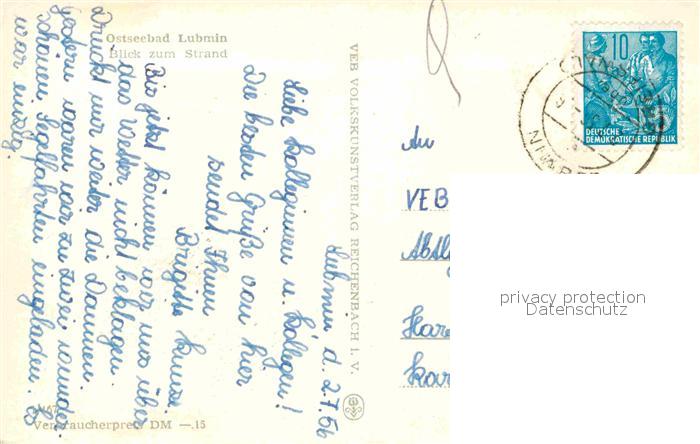 Ostseebad Lubmin
Blick zum Strand
Lubmin d. 2.7.56
Liebe Kolleginnen u. Kollegen!
Die besten Grüße von hier
sendet Ihnen
Brigitte
Bis jetzt können wir uns über
das Wetter nicht beklagen.
Drückt mir weiter die Daumen.
Gestern waren wir zu zwei wunder-
schönen Segelfahrten eingeladen. Es
war einzig.
Verbraucherpreis DM —.15
VEB VOLKSKUNSTVERLAG REICHENBACH i. V.
10
DEUTSCHE
DEMOKRATISCHE REPUBLIK
LUBMIN
An
VEB
privacy protection
Datenschutz